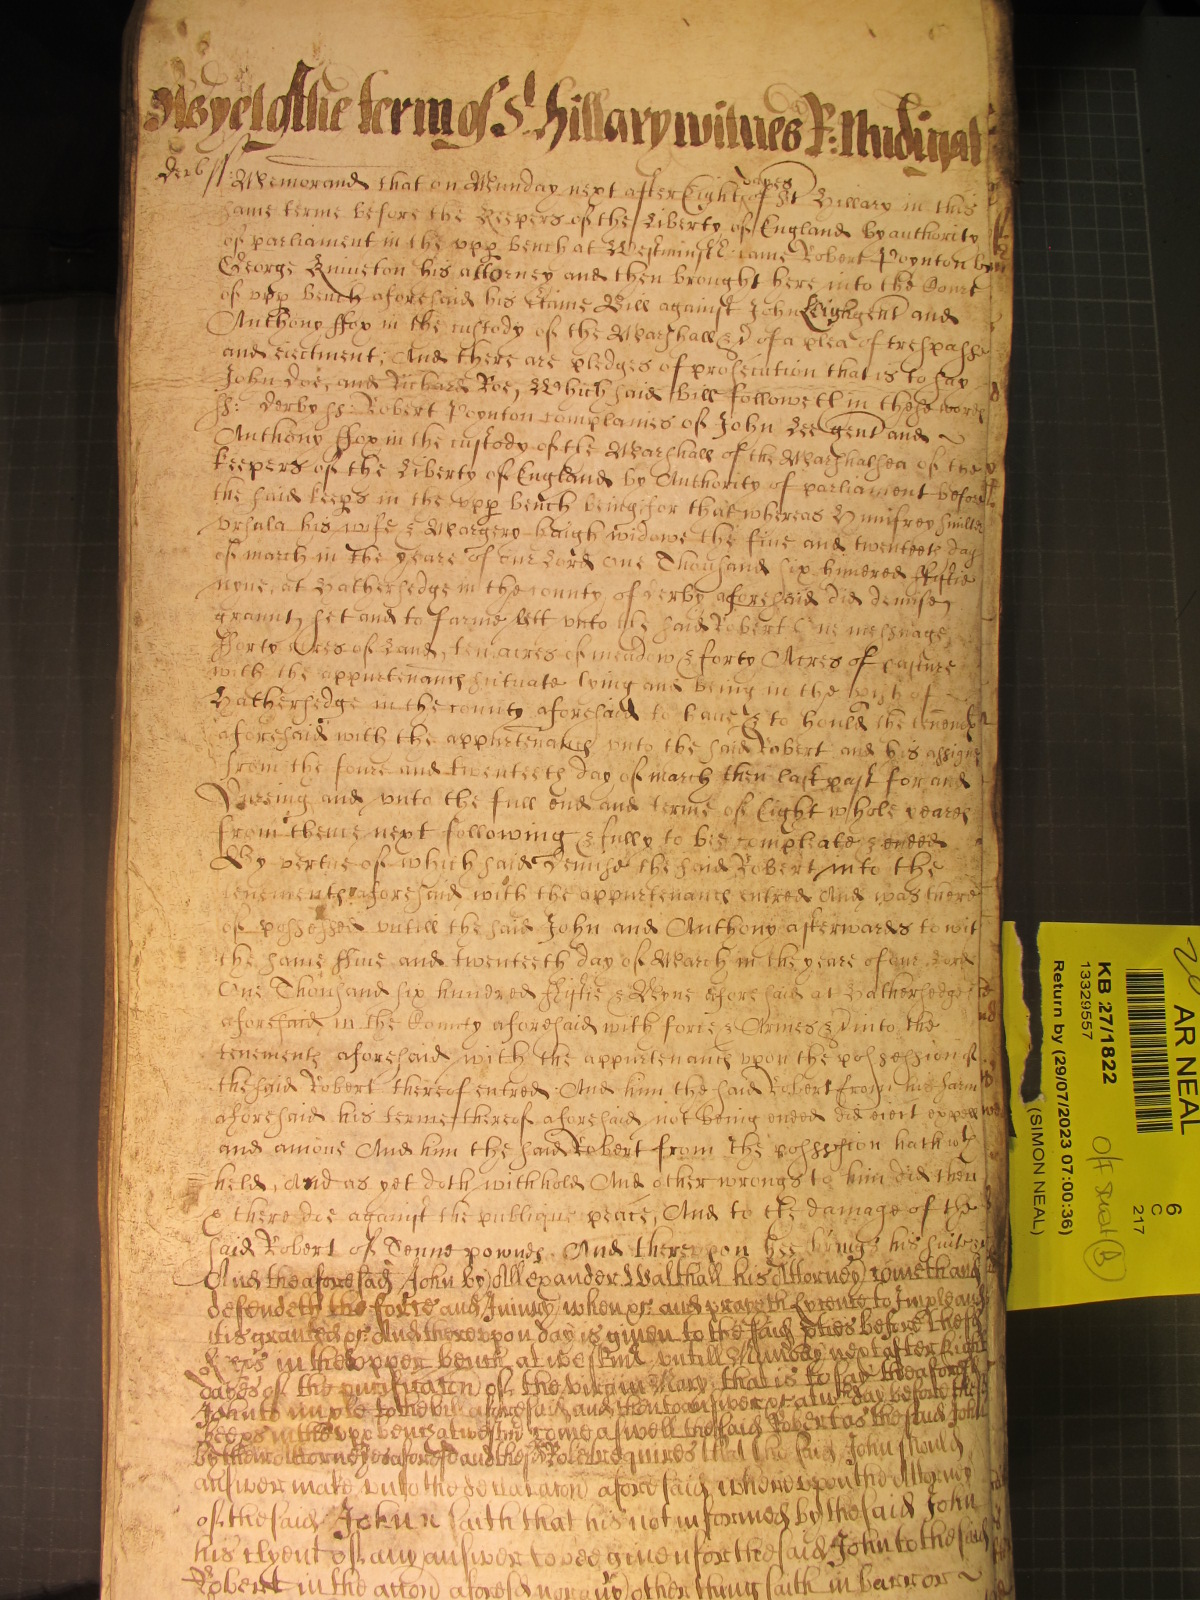 As yet of the term of St. Hillary witnes R: Nudigat
Derb ss: Memorand that on Munday next after Eight dayes of St Hillary in this
same terme before the Keepers of the Liberty of England by authority
of parliament in the upp bench at Westminstr came Robert Poynton by
George Kniveton his attorney and then brought here into the Court
of upp bench aforesaid his Certaine Bill against John Leigh gent and
Anthony ffox in the custody of the Marshall &c of a plea of trespasse
and eiectment; And there are pledges of prosecution that is to say
John Doe, and Richard Roe, Which said bill followeth in these words
ss: Derby ss: Robert Poynton complaines of John Lee gent and
Anthony ffox in the custody of the Marshall of the Marshalsea of the
keepers of the Liberty of England by Authority of parliament before
the said keeps in the upp bench being for that whereas Humfrey
Ursula his wife & Margery haigh widowe the five and twenteeth day
of march in the yeare of our Lord One Thousand six hundred ffiftie
nyne, at Hathersedge in the county of derby aforesaid did demise,
graunt, set and to farme lett unto the said Robert One messuage,
fforty Acres of Land, ten acres of meadow & forty Acres of pasture
with the appurtenances scituate lying and being in the pish of
Hathersedge in the county aforesaid to have & to hould the tenemts
aforesaid with the appurtenances unto the said Robert and his assignes
from the foure and twenteeth day of march then last past for and
During and unto the full end and terme of Eight whole yeares
from thence next following & fully to bee compleate & ended
By vertue of which said Demise the said Robert into the
tenements aforesaid with the appurtenances entred And was there
of possessed untill the said John and Anthony afterwards to wit
the same ffive and twenteeth day of March in the yeare of our Lord
One Thousand six hundred ffiftie & Nyne aforesaid at Hathersedge
aforesaid in the County aforesaid with force & Armes &c into the
tenements aforesaid with the appurtenances upon the possession of
the said Robert thereof entred And him the said Robert from his farm
aforesaid his terme thereof aforesaid not being ended did eiect expell
and amove And him the said Robert from the possession hath wth
held, And as yet doth withhold And other wrongs to him did then
& there doe against the publique peace, And to the damage of the
said Robert of Tenne pownds. And thereupon hee brings his suite &c
And the aforesaid John by Allexander Walthall his Attorney cometh and
defendeth the force and Iniury when &c and prayeth lycence to Imple and
it is granted &c And thereupon day is given to the said pties before the sd
Keeps in the upper bench at westmr untill Munday next after Eight
dayes of the purificacon of the virgin Mary that is to say the aforesd
John to imple to the bill aforesaid and then to answer &c at wch day before the
keeps in the upp bench at westmr come aswell the said Robert as the said John
by their Attorneyes aforesd and the sd Robert requires that the said John should
answer make unto the declaracon aforesaid whereupon the Attorney
of the said John saith that hee is not informed by the said John
his clyent of any answer to bee given for the said John to the said
Robert in the accon aforesd nor any other thing saith in barr or
AR NEAL
KB 27/1822
13329557
Return by (29/07/2023 07:00:36)
(SIMON NEAL)
6
C
217